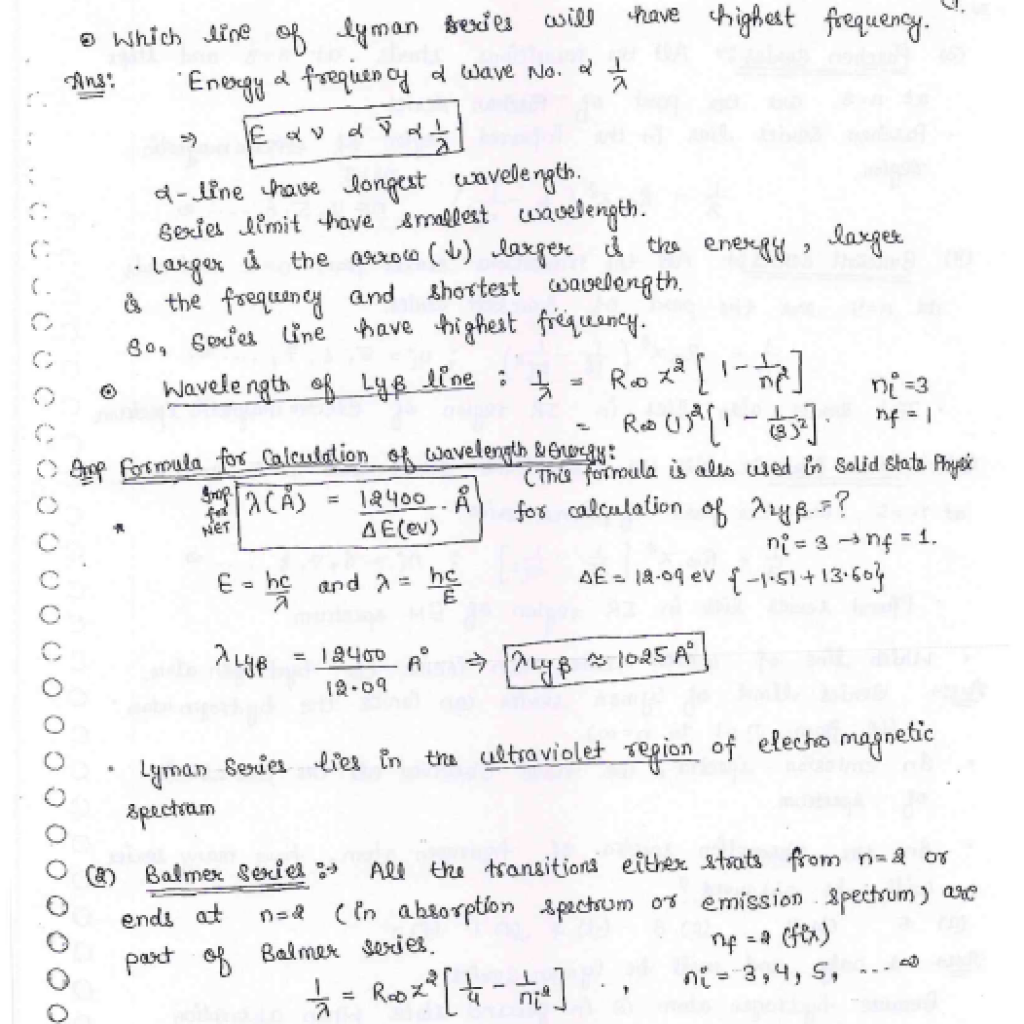 ⊙ Which line of lyman series will have highest frequency.
Ans: Energy α frequency α Wave No. α 1/λ
⇒ E α ν α ν̅ α 1/λ
α-line have longest wavelength.
Series limit have smallest wavelength.
. Larger is the arrow (↓) larger is the energy, larger
is the frequency and shortest wavelength.
So, Series line have highest frequency.
⊙ Wavelength of Lyβ line : 1/λ = R∞ z² [ 1 - 1/ni² ] ni = 3
= R∞ (1)² [ 1 - 1/(3)² ]. nf = 1
Imp Formula for Calculation of wavelength & Energy:
(This formula is also used in Solid State Physic
* Imp for NET λ(Å) = 12400/ΔE(ev) . Å for calculation of λLyβ = ?
ni = 3 → nf = 1.
E = hc/λ and λ = hc/E ΔE = 12.09 eV {-1.51 + 13.60}
λLyβ = 12400/12.09 A° ⇒ λLyβ ≈ 1025 A°
. Lyman Series lies in the ultraviolet region of electro magnetic
spectrum
(2) Balmer Series :→ All the transitions either strats from n=2 or
ends at n=2 (in absorption spectrum or emission spectrum) are
part of Balmer series. nf = 2 (fix)
1/λ = R∞ z² [ 1/4 - 1/ni² ] . , ni = 3, 4, 5, ... ∞